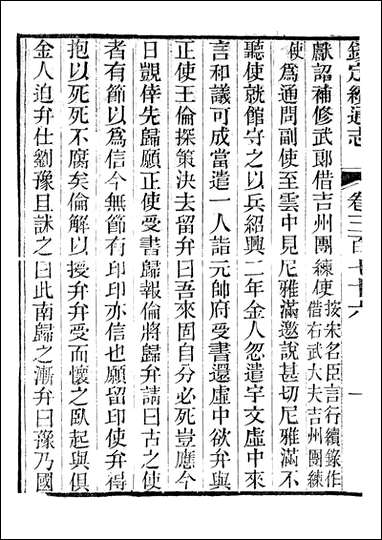 欽定續通志
卷三百七十六
一
獻詔補修武郎借吉州團練使
按宋名臣言行續錄作
借右武大夫吉州團練
使爲通問副使至雲中見尼雅滿邀說甚切尼雅滿不
聽使就館守之以兵紹興二年金人忽遣宇文虛中來
言和議可成當遣一人詣元帥府受書還虛中欲弁與
正使王倫探策決去留弁曰吾來固自分必死豈應今
日覬倖先歸願正使受書歸報倫將歸弁請曰古之使
者有節以爲信今無節有印印亦信也願留印使弁得
抱以死死不腐矣倫解以授弁弁受而懷之臥起與俱
金人迫弁仕劉豫且訹之曰此南歸之漸弁曰豫乃國